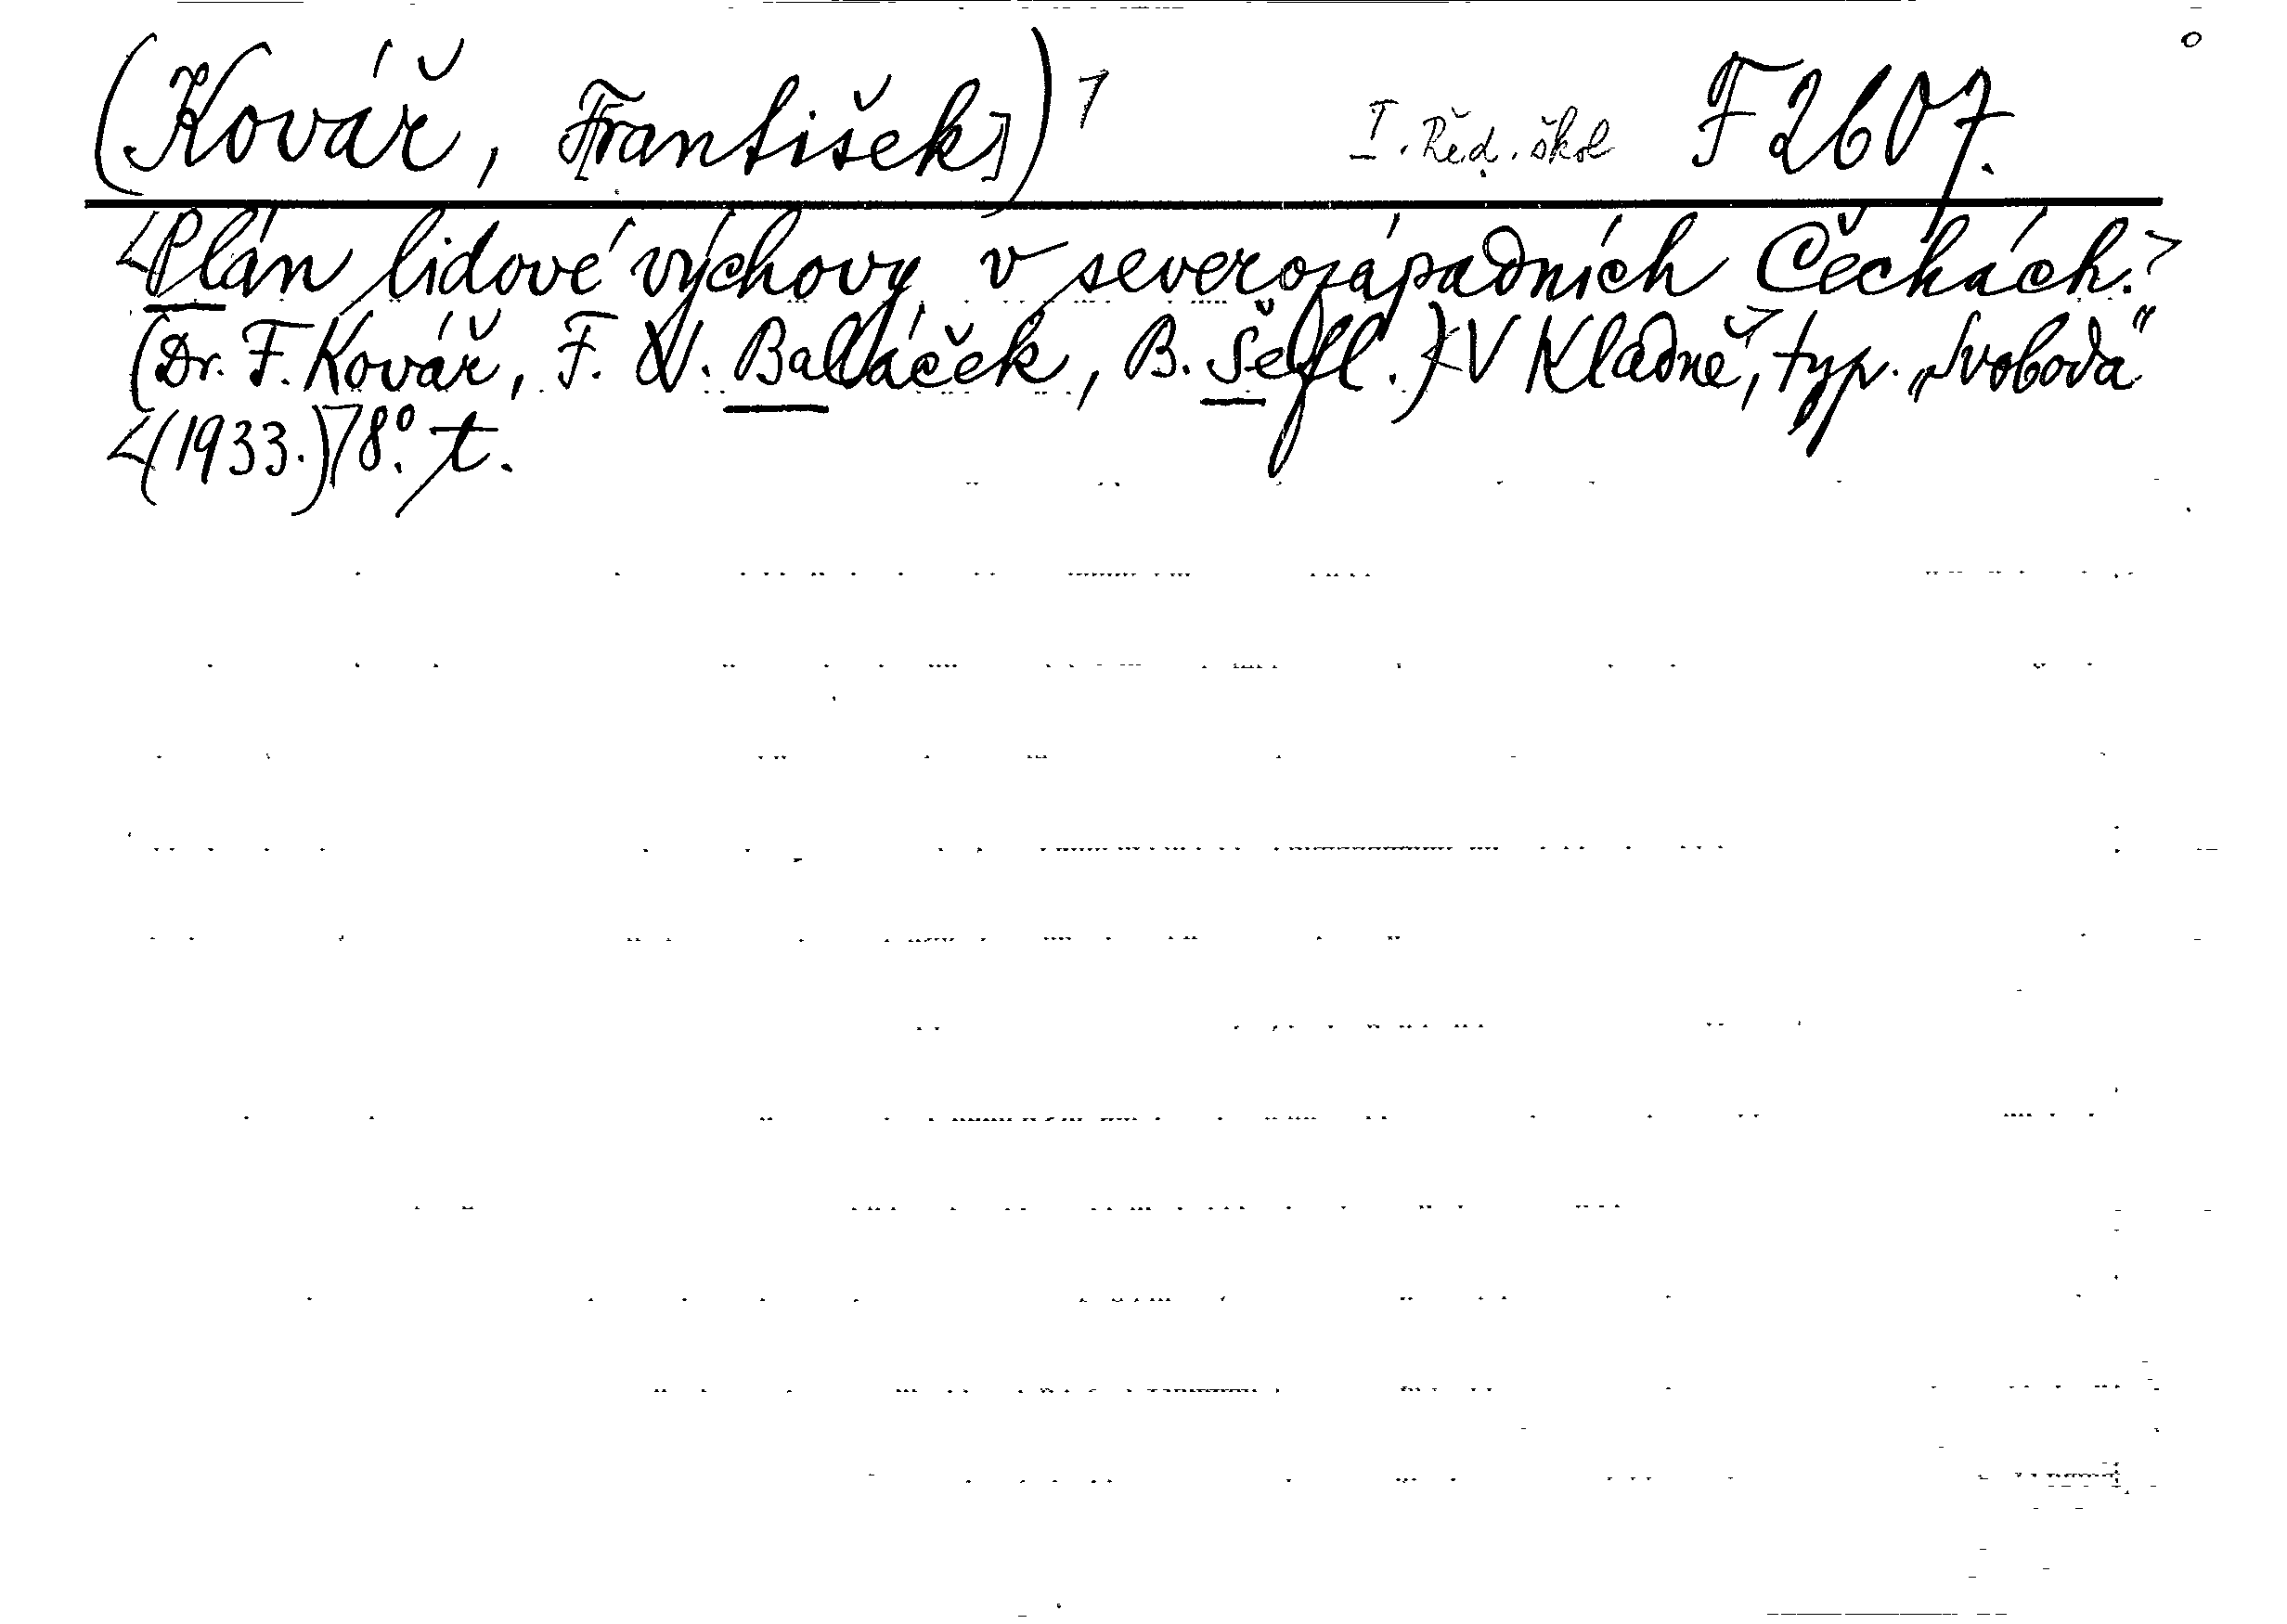 (Kovář, F[rantišek])¹ I. Řed. škol F 2607.
<Plán lidové výchovy v severozápadních Čechách.>
(Dr. F. Kovář, F. V. Balláček, B. Šefl.) <V Kladně>, typ. „Svoboda“
<(1933.)> 8°. t.